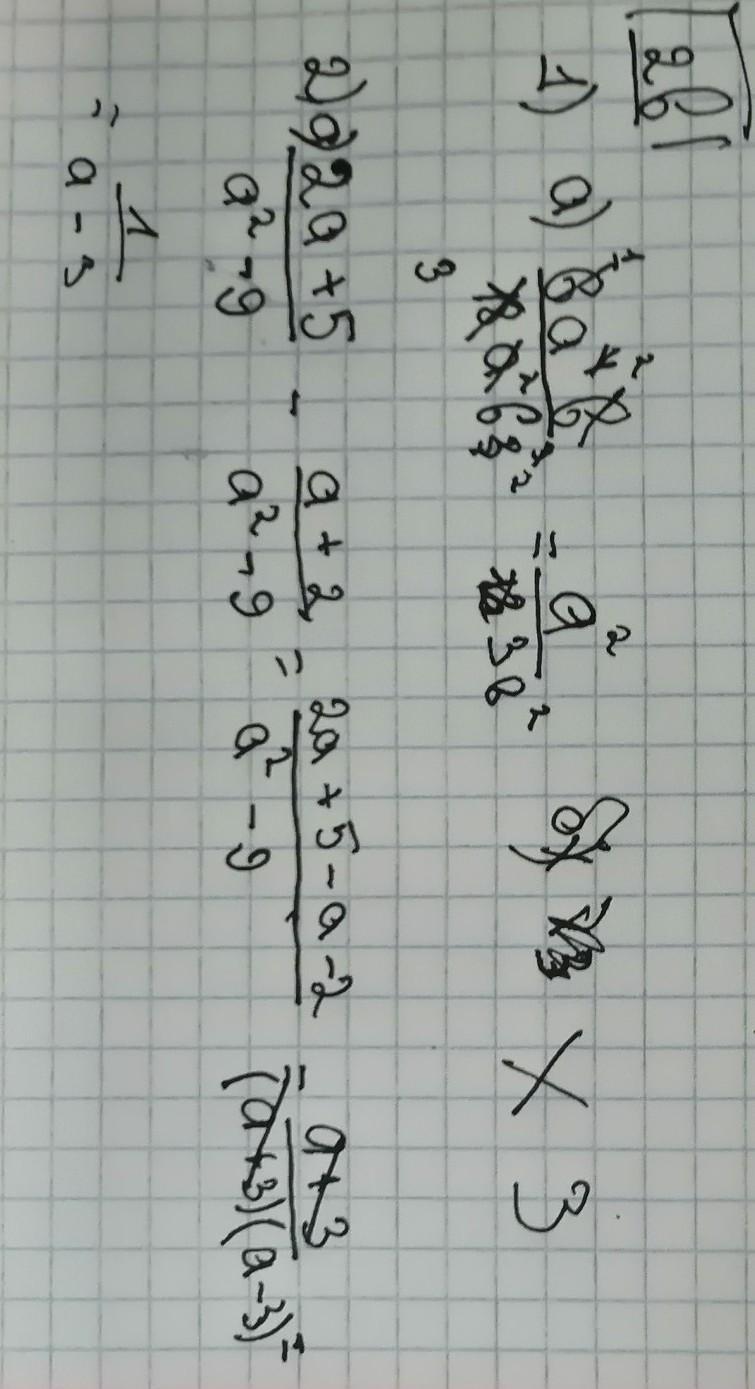 2б
1) a) 6a⁴б / 18a²б³ = a² / 3в² б) X 3
2) a) 2a + 5 / a² - 9 - a + 2 / a² - 9 = 2a + 5 - a - 2 / a² - 9 = a + 3 / (a + 3)(a - 3) =
= 1 / a - 3